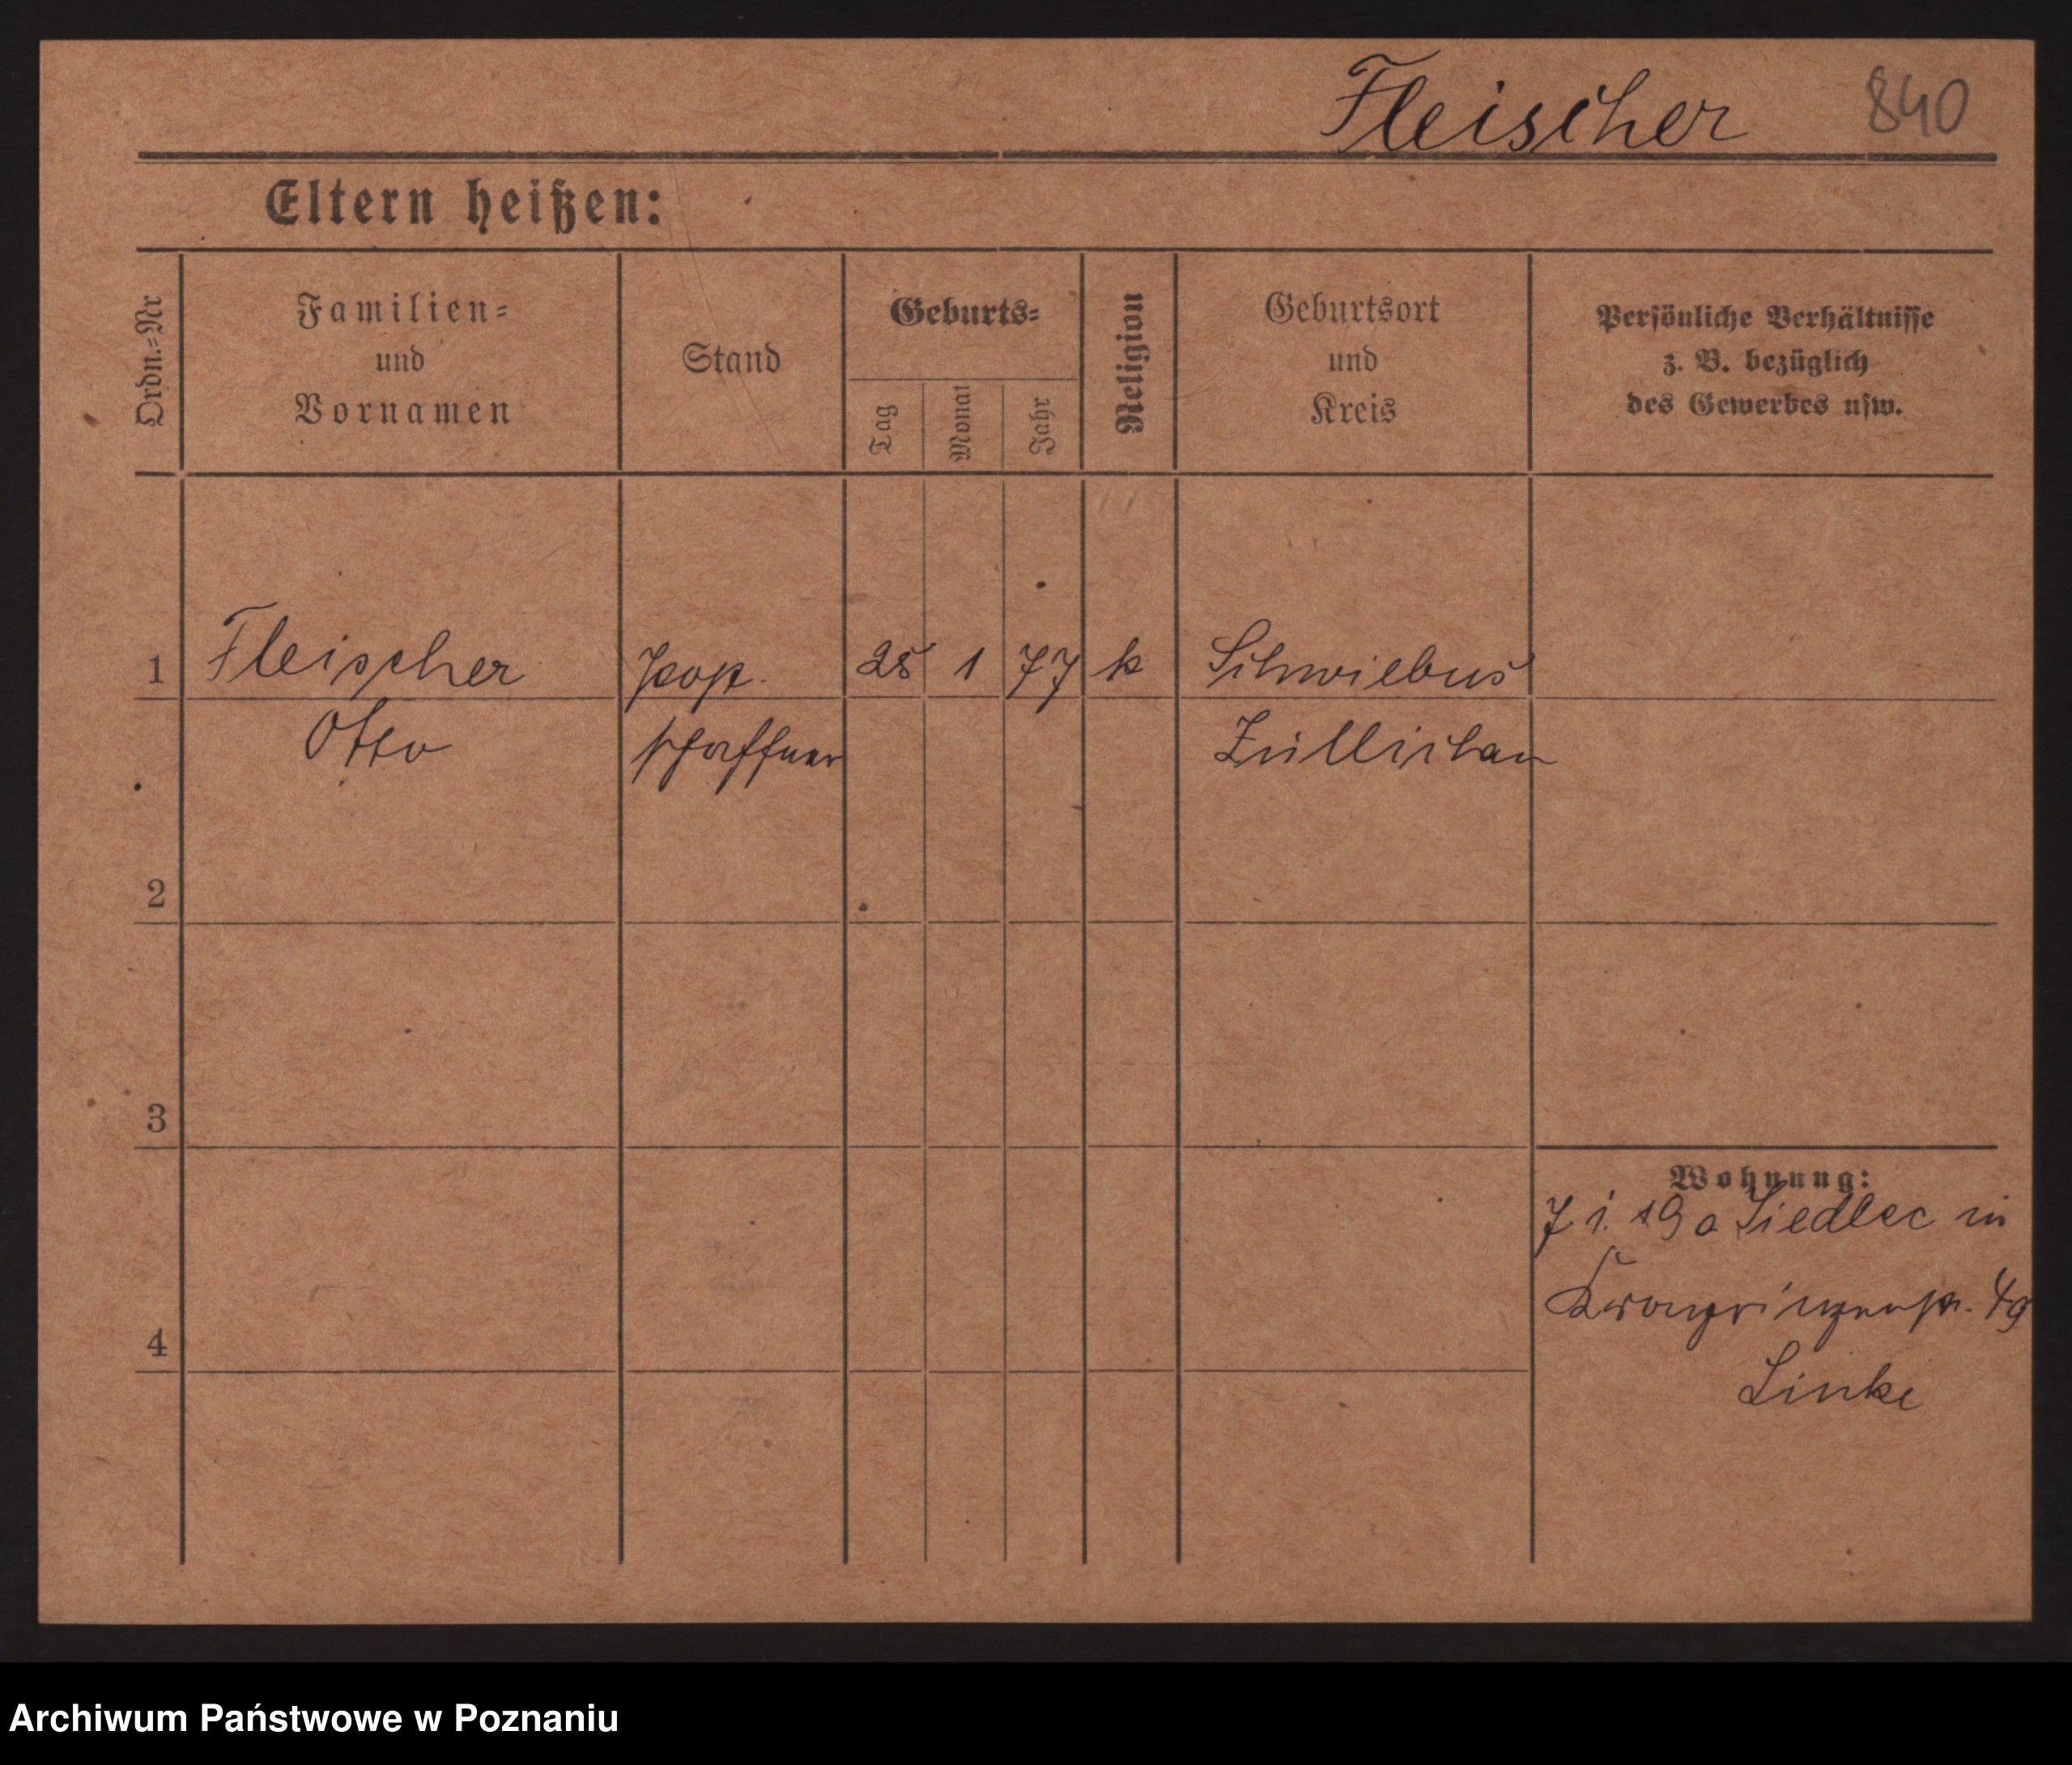 Fleischer 840
Eltern heißen:
Ordn.-Nr
Familien-
und
Vornamen
Stand
Geburts-
Tag
Monat
Jahr
Religion
Geburtsort
und
Kreis
Persönliche Verhältnisse
z. B. bezüglich
des Gewerbes usw.
1 Fleischer Post. 25 1 77 k Schwiebus
Otto schaffner Züllichau
2
3
4
Wohnung:
7 1. 19 a Siedlec in
Kronprinzenstr. 49
Linke
Archiwum Państwowe w Poznaniu